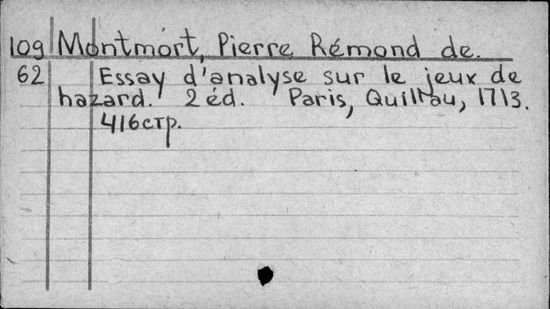 109 Montmort, Pierre Rémond de.
62 Essay d'analyse sur le jeux de
hazard. 2 éd. Paris, Quillau, 1713.
416стр.